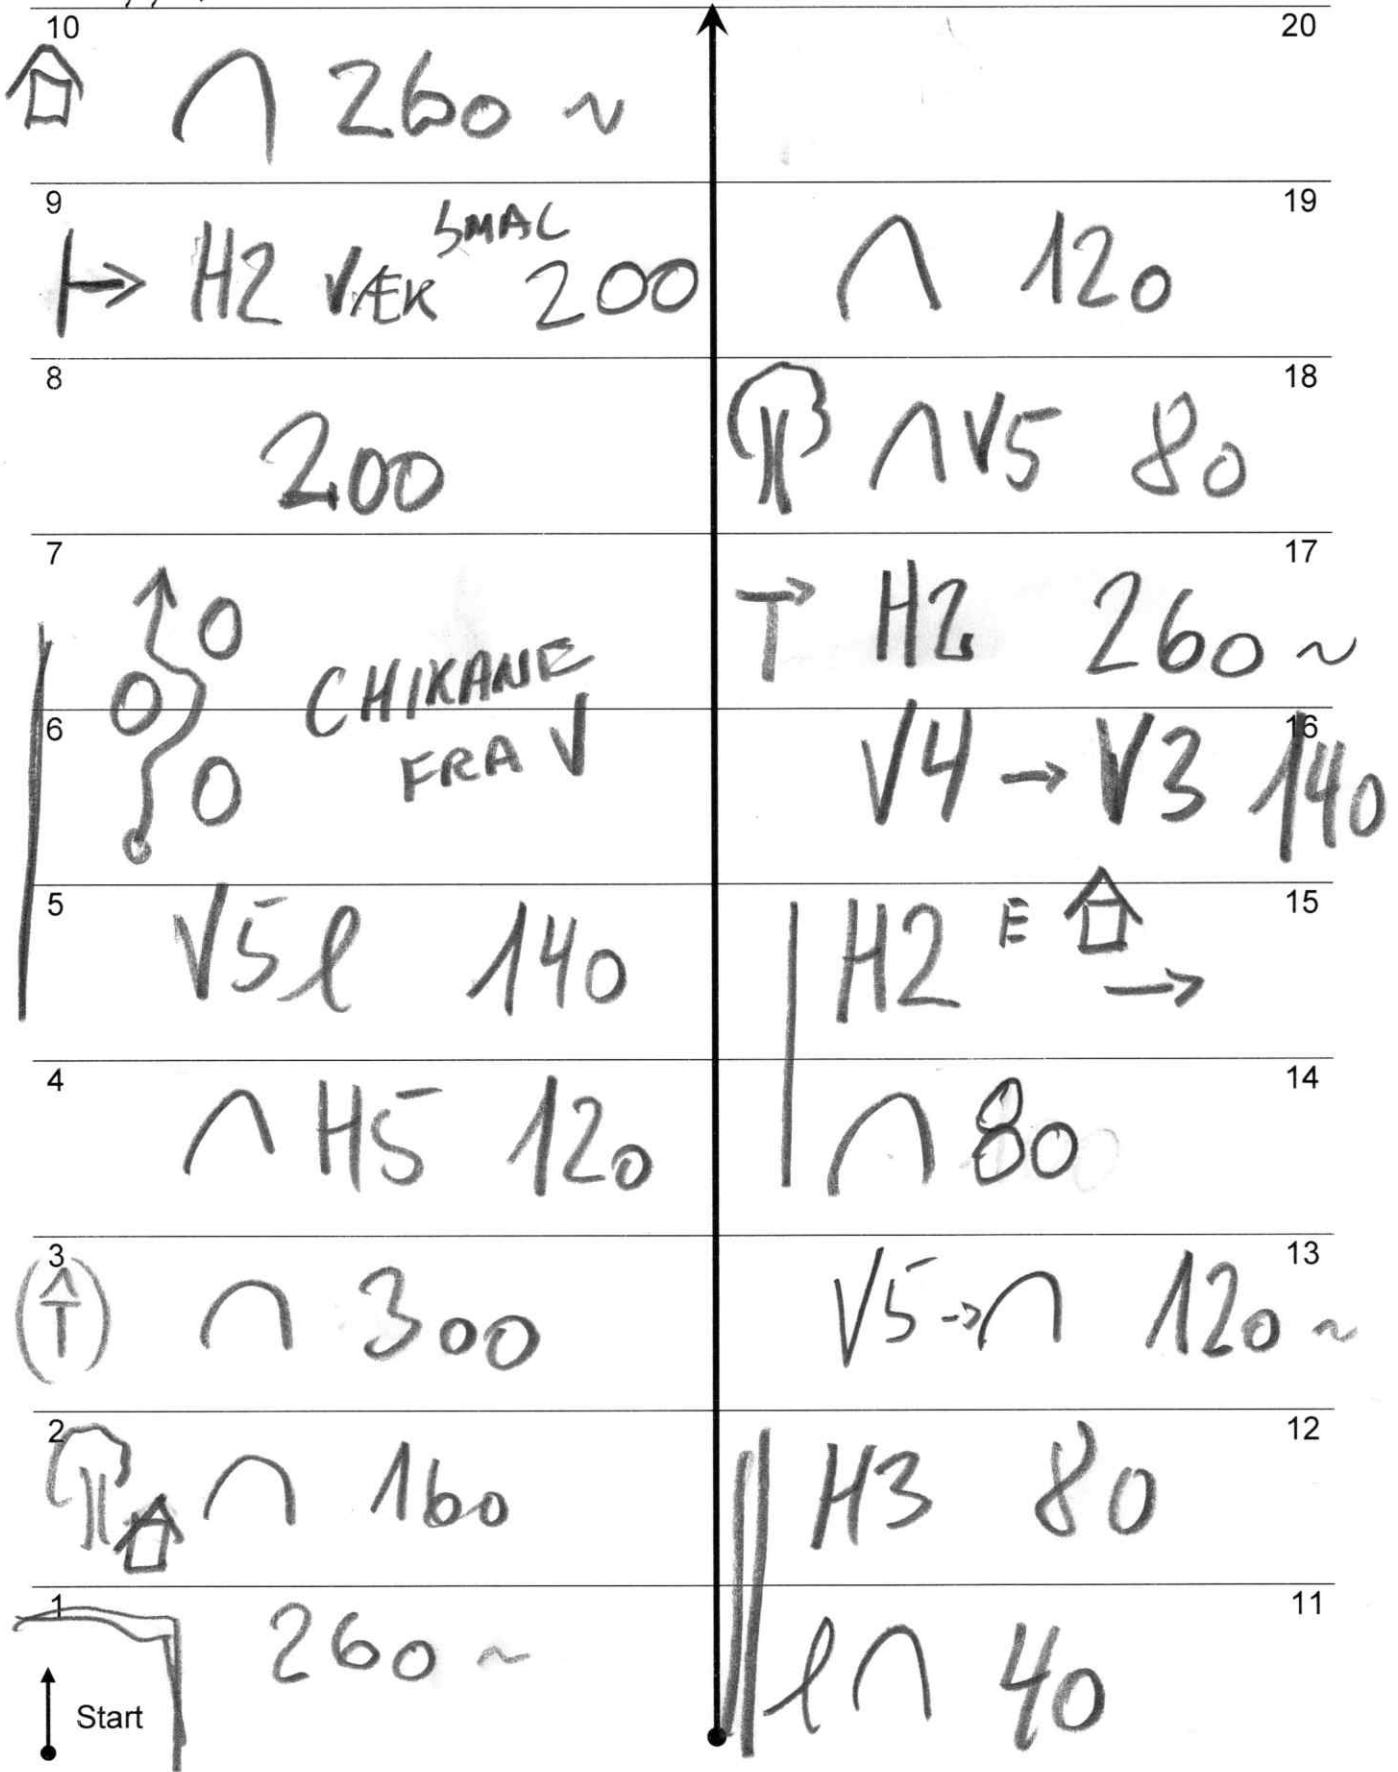 10
260 ~
9
H2 VÆK SMAL 200
8
200
7
CHIKANE
6
FRA V
5
V5 l 140
4
H5 120
3
300
2
160
1
260 ~
Start
20
19
120
18
V5 80
17
H2 260 ~
16
V4 → V3 140
15
H2 E →
14
80
13
V5 → 120 ~
12
H3 80
11
l 40